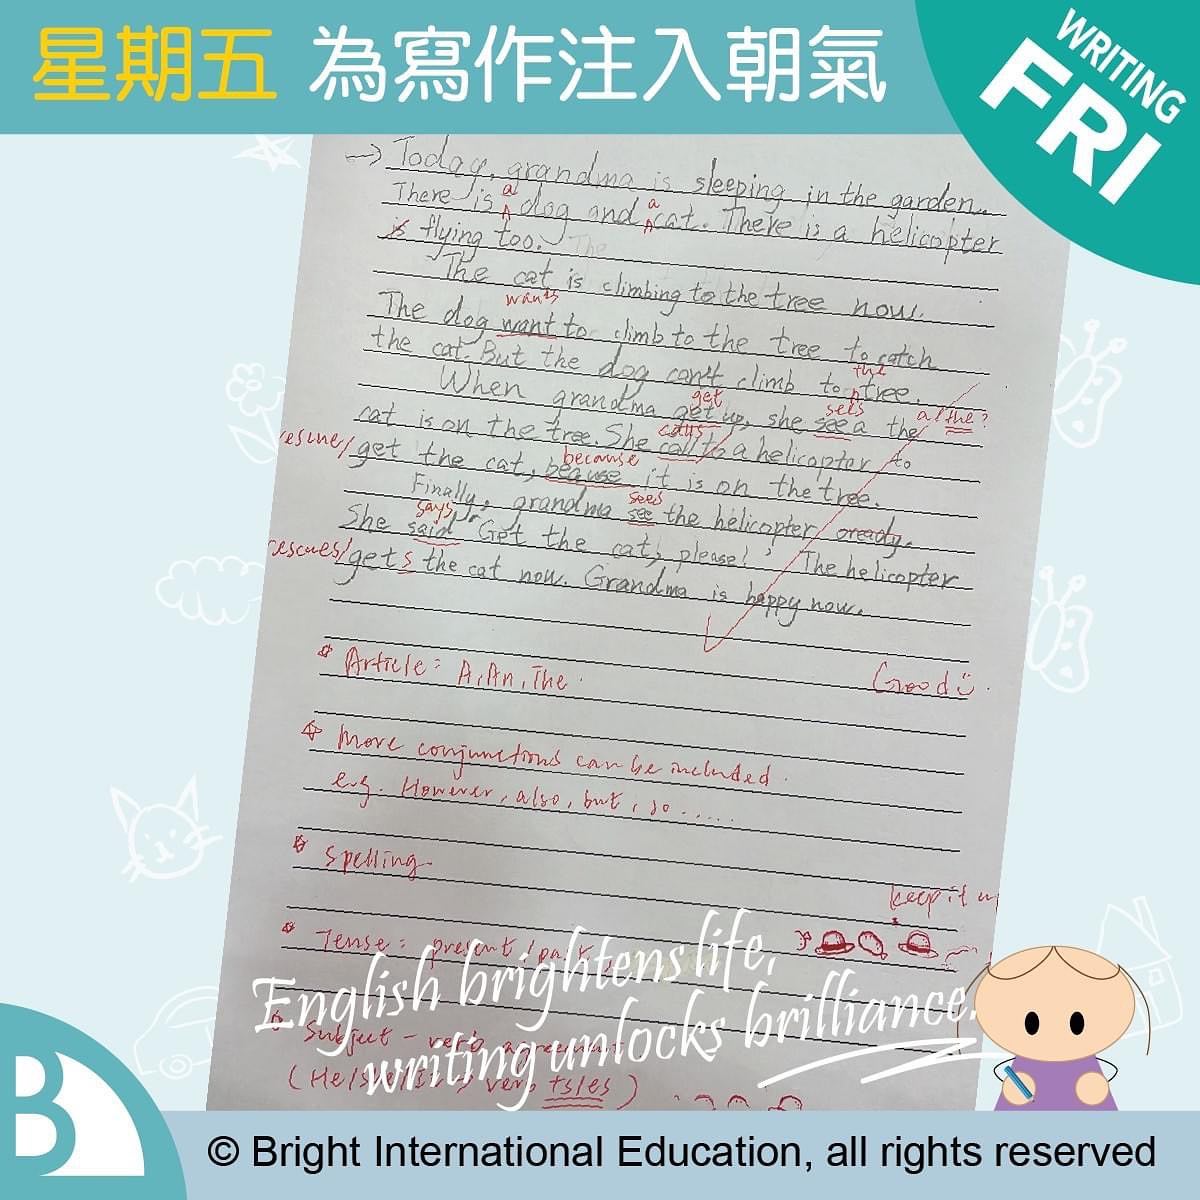 星期五 為寫作注入朝氣
WRITING
FRI
→ Today, grandma is sleeping in the garden.
a a
There is dog and cat. There is a helicopter
is flying too. The
The cat is climbing to the tree now.
wants
The dog want to climb to the tree to catch
the
the cat. But the dog can't climb to tree.
get sees a / the?
When grandma get up, she see a the
calls
cat is on the tree. She call to a helicopter to
rescue/ because
get the cat, beause it is on the tree.
sees
Finally, grandma see the helicopter oready.
says
She said "Get the cat, please!' The helicopter
rescues/
gets the cat now. Grandma is happy now.
Article: A, An, The.
Good
More conjunctions can be included.
e.g. However, also, but, so .....
Spelling.
keep it
Tense: present / past
English brightens life,
writing unlocks brilliance.
Subject - verb agreement.
(He/She/It → verb +s/es)
B
© Bright International Education, all rights reserved